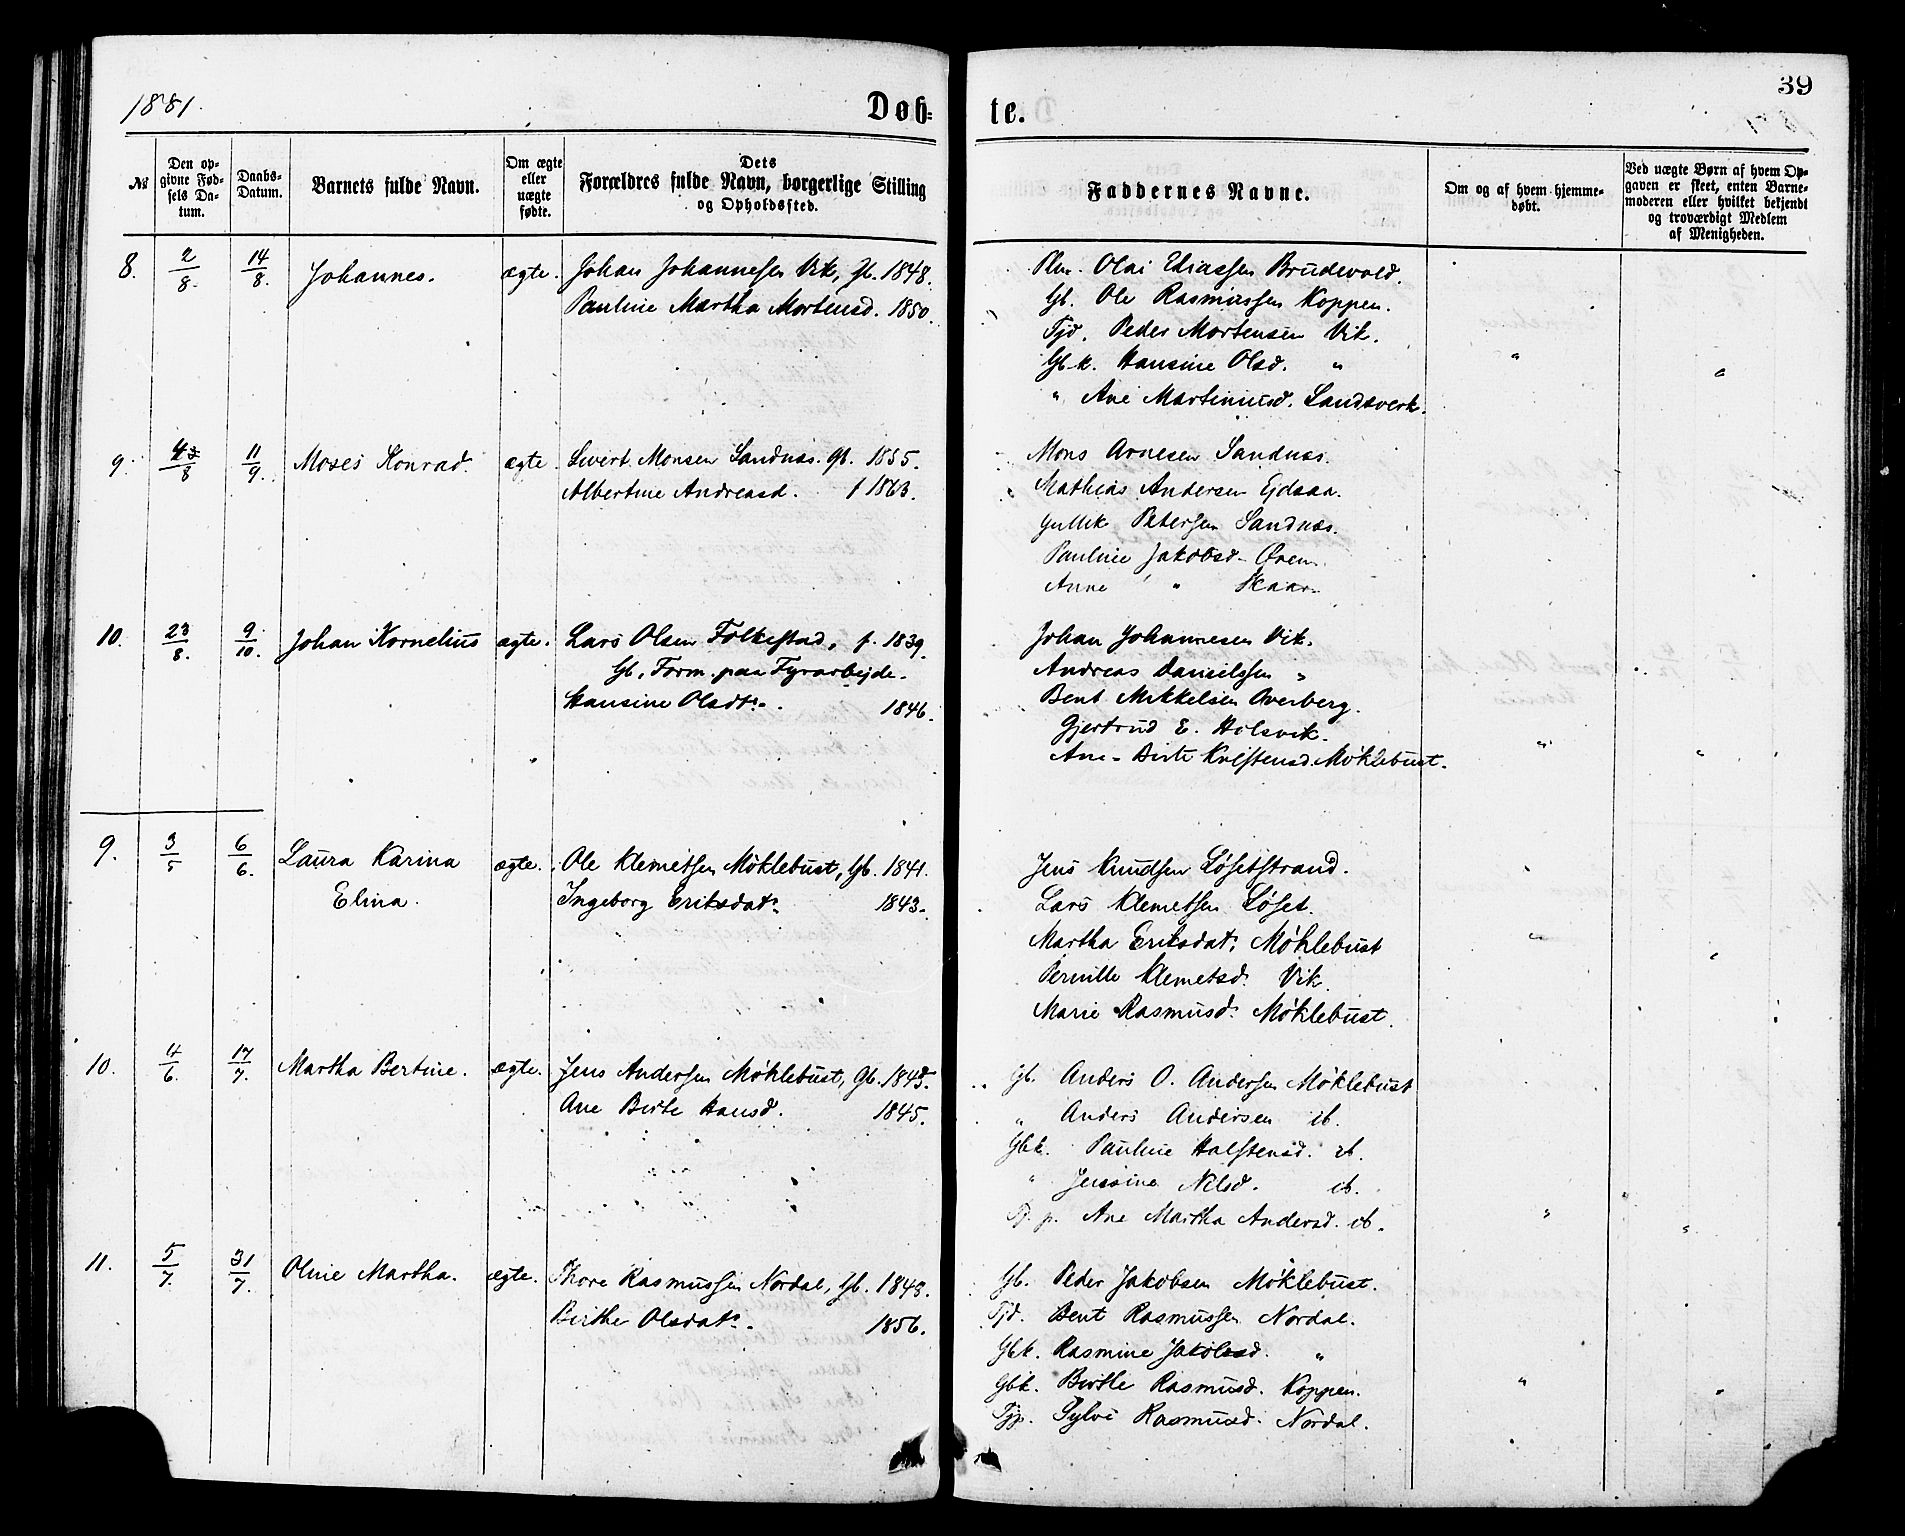 1881.
Døb-
te.
39
№
Den op-
givne Fød-
sels Da-
tum.
Daabs-
Datum.
Barnets fulde Navn.
Om ægte
eller
uægte
fødte.
Dets
Forældres fulde Navn, borgerlige Stilling
og Opholdssted.
Faddernes Navne.
Om og af hvem hjemme-
døbt.
Ved uægte Børn af hvem Op-
gaven er skeet, enten Barne-
moderen eller hvilket bekjendt
og troværdigt Medlem
af Menigheden.
8. 2/8. 14/8. Johannes. ægte. Johan Johannesen Vik, Gb. 1848.
Pauline Martha Mortensd. 1850.
Olai Eliassen Brudevold.
Gb. Ole Rasmussen Koppen.
Tjd. Peder Mortensen Vik.
Gb.k. Hansine Olsd. "
" Ane Martinusd. Landsverk.
9. /8 11/9. Moses Konrad. ægte. Sivert Monsen Sandnæs. Gb. 1855.
Albertine Andreasd. f 1863.
Mons Arnesen Sandnæs.
Mathias Andersen Ejdsaa.
Gullik Petersen Sandnæs.
Pauline Jakobsd. Øren.
Anne " Skaar.
10. 23/8. 9/10. Johan Kornelius ægte. Lars Olsen Folkestad, f. 1839.
Gb. Form. paa Fyrarbejde.
Hansine Olsdtr. 1846.
Johan Johannesen Vik.
Andreas Danielssen "
Bent Mikkelsen Overberg.
Gjertrud E. Holsvik.
Ane-Birte Møklebust.
9. 3/5 6/6. Laura Karina ægte. Ole Klemetsen Møklebust, Gb. 1841.
Elina. Ingeborg Eriksdatr. 1843.
Jens Knudsen Løsetstrand.
Lars Klemetsen Løset.
Martha Eriksdatr. Møklebust
Pernille Klemetsd. Vik.
Marie Rasmusd. Møklebust.
10. 4/6. 17/7. Martha Bertine. ægte. Jens Andersen Møklebust, Gb. 1845.
Ane Birte Hansd. 1845.
Gb. Anders O. Andersen Møklebust
" Anders Andersen ib.
Gbk. Pauline Halstensd. ib.
" Jensine Nilsd. ib.
Ane Martha Andersd. ib.
11. 5/7. 31/7. Oline Martha. ægte. Thore Rasmussen Nordal, Gb. 1848.
Birthe Olsdatr. 1856.
Gb. Peder Jakobsen Møklebust.
Tjd. Bent Rasmussen Nordal.
Gbk. Rasmine Jakobsd. "
Gbk. Birthe Rasmusd. Koppen.
Tjp. Sylvi Rasmusd. Nordal.